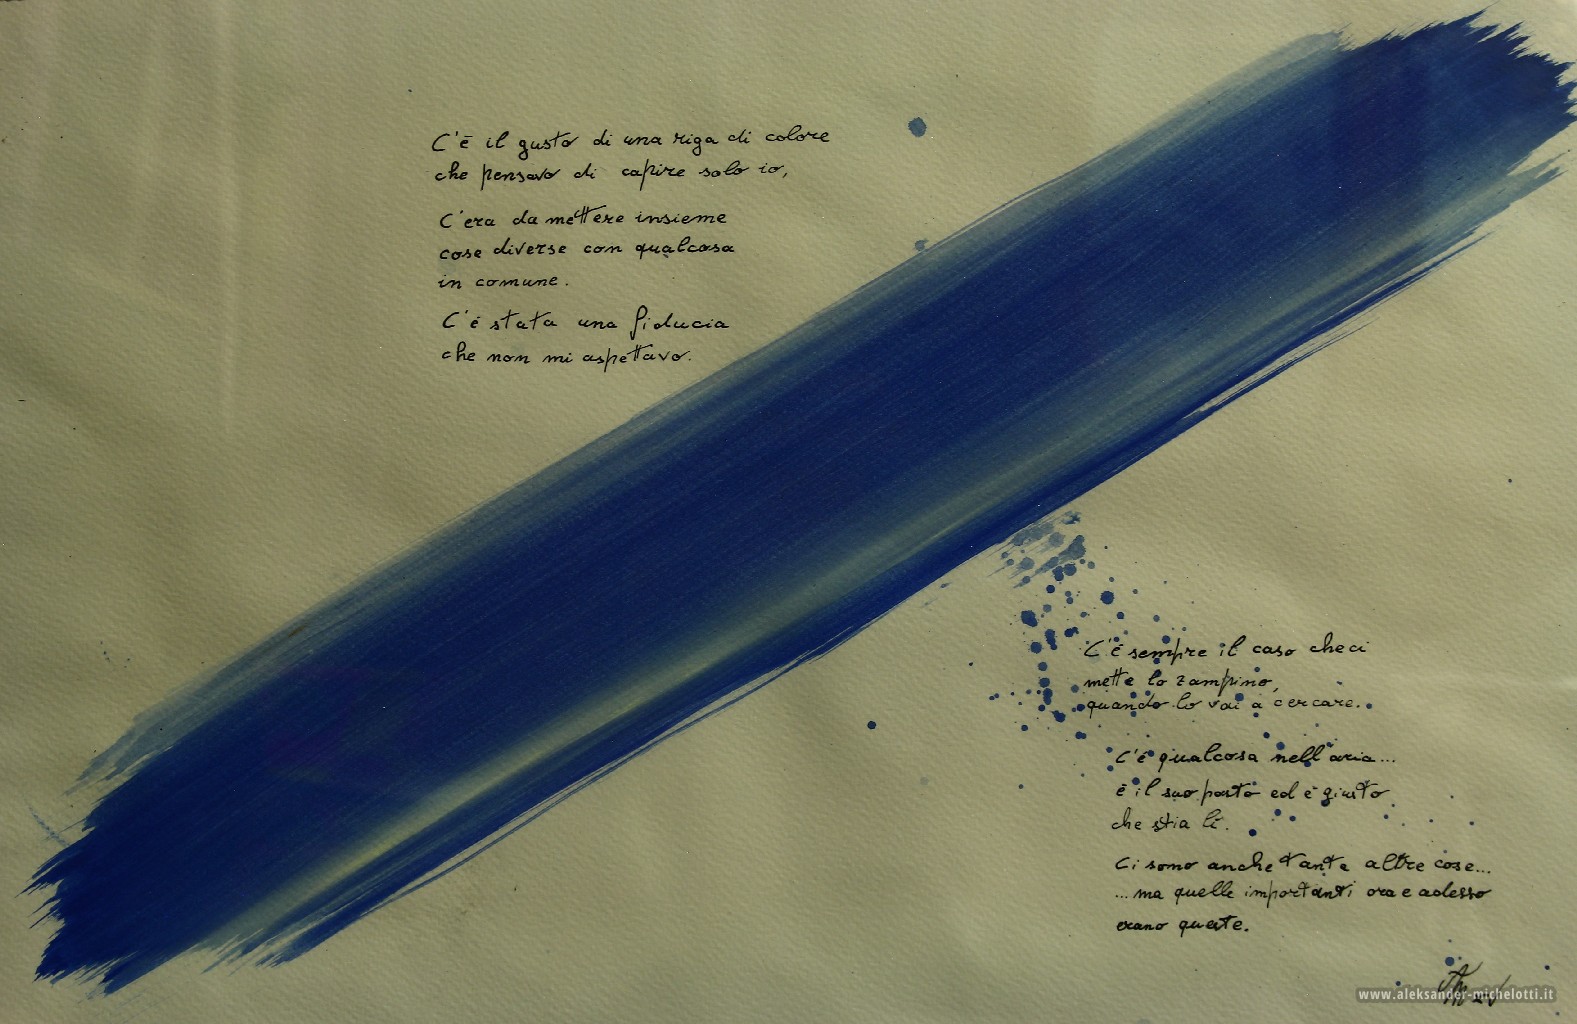 C'è il gusto di una riga di colore
che pensavo di capire solo io,
C'era da mettere insieme
cose diverse con qualcosa
in comune.
C'è stata una fiducia
che non mi aspettavo.
C'è sempre il caso che ci
mette lo zampino,
quando lo vai a cercare.
C'è qualcosa nell'aria...
è il suo posto ed è giusto
che stia lì.
Ci sono anche tante altre cose...
...ma quelle importanti ora e adesso
erano queste.
www.aleksander-michelotti.it